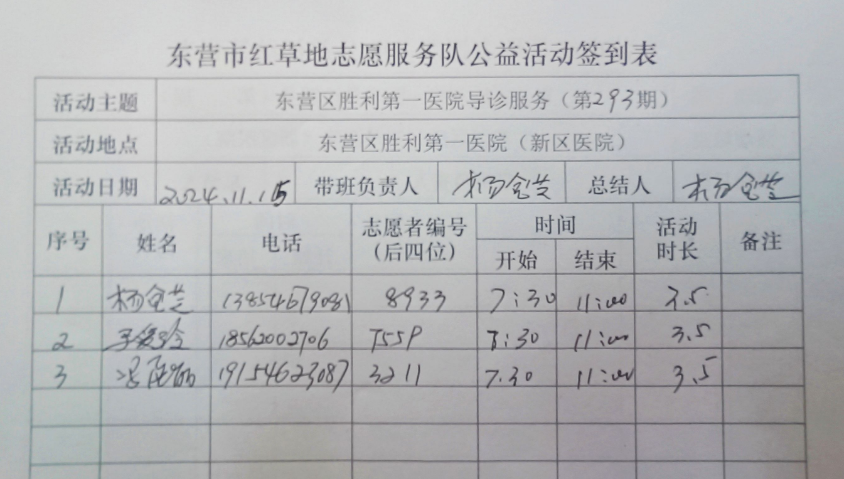 东营市红草地志愿服务队公益活动签到表
活动主题 东营区胜利第一医院导诊服务（第293期）
活动地点 东营区胜利第一医院（新区医院）
活动日期 2024.11.15 带班负责人 杨金芝 总结人 杨金芝
序号 姓名 电话 志愿者编号（后四位） 时间 开始 结束 活动时长 备注
1 杨金芝 13854679081 8933 7:30 11:00 3.5
2 18562002706 7:30 11:00 3.5
3 19154623087 3211 7.30 11:00 3.5